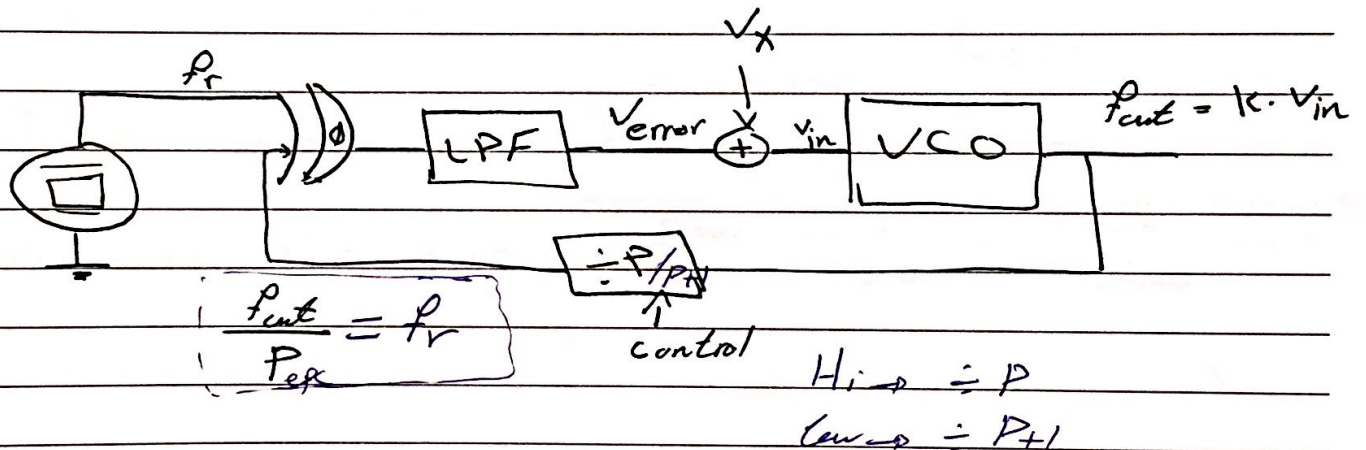 Vx
fr
φ
LPF
Verror
+
vin
VCO
fout = K. Vin
÷P/P+1
control
fout / Peff = fr
Hi → ÷ P
Low → ÷ P+1